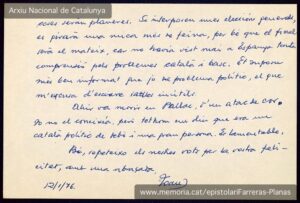 Arxiu Nacional de Catalunya
coses seran planeres. Si interposen unes eleccions generals,
es girarà una mica més la feina, per bé que el final
serà el mateix, car no havia vist mai a Espanya tanta
comprensió pels problemes català i basc. Et suposo
més ben informat que jo de problemes polític, el que
m'excusa d'escriure ratlles inútils.
Ahir va morir en Pallac, d'un atac de cor.
Jo no el coneixia, però tothom em diu que era un
català polític de debò i una gran persona. Es lamentable.
Bé, repeteixo els nostres vots per la vostra feli-
citat, amb una abraçada
Joan
12/1/76
www.memoria.cat/epistolariFarreras-Planas